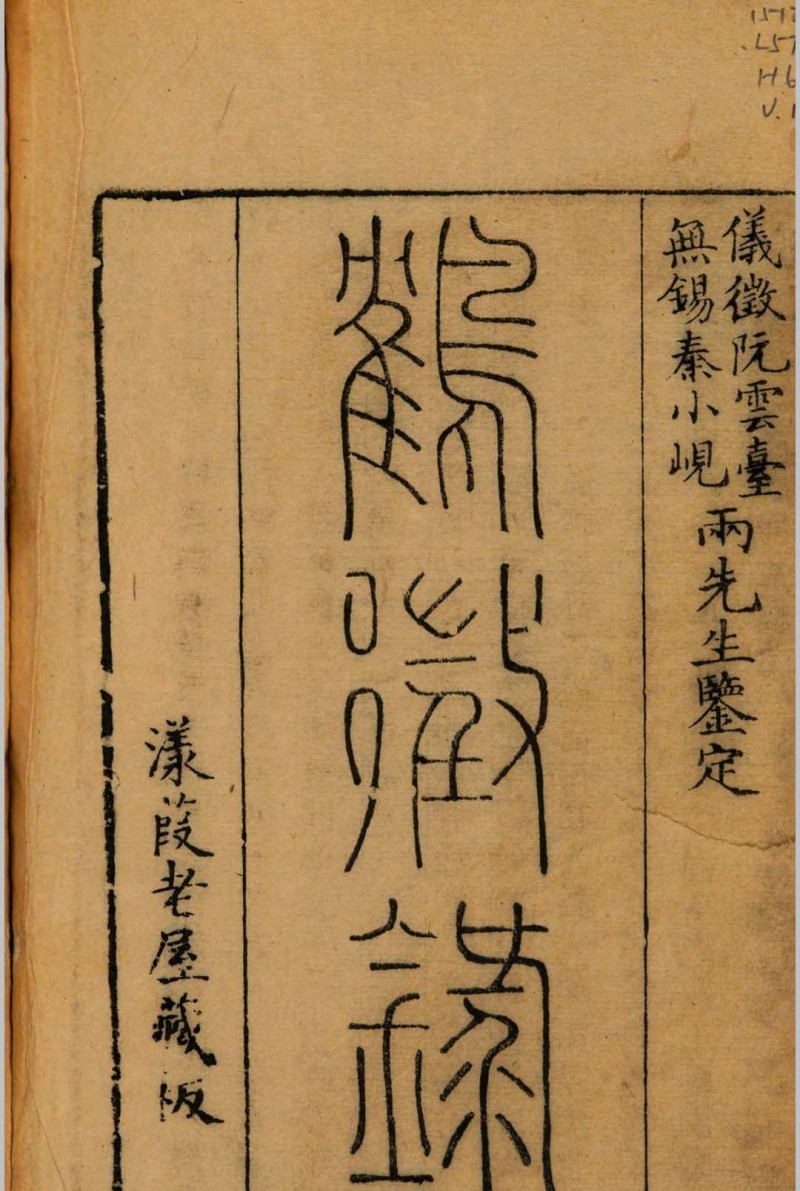 .L57
H6
V.1
儀徵阮雲臺
無錫秦小峴
兩先生鑒定
鶴徵錄
漾葭老屋藏板